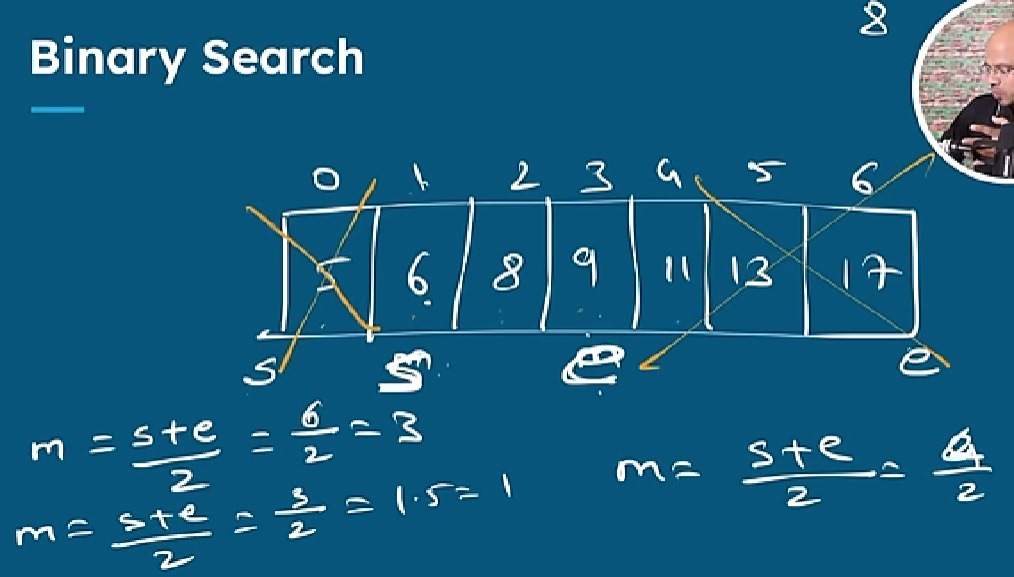 8
Binary Search
0 1 2 3 4 5 6
5 6 8 9 11 13 17
s s e e
m = s+e/2 = 6/2 = 3
m = s+e/2 = /2
m = s+e/2 = 3/2 = 1.5 = 1